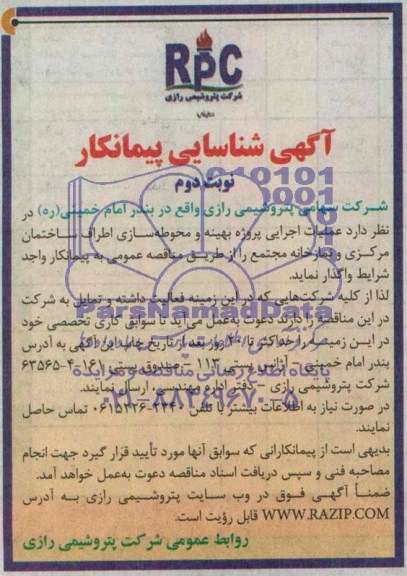 RPC
شرکت پتروشیمی رازی
آگهی شناسایی پیمانکار
نوبت دوم
شرکت سهامی پتروشیمی رازی واقع در بندر امام خمینی(ره) در
نظر دارد عملیات اجرایی پروژه بهینه و محوطه‌سازی اطراف ساختمان
مرکزی و نمازخانه مجتمع را از طریق مناقصه عمومی به پیمانکار واجد
شرایط واگذار نماید.
لذا از کلیه شرکت‌هایی که در این زمینه فعالیت داشته و تمایل به شرکت
در این مناقصه را دارند دعوت به‌عمل می‌آید تا سوابق کاری تخصصی خود
در این زمینه را حداکثر تا ۲۰ روز بعد از تاریخ چاپ این آگهی به آدرس
بندر امام خمینی – ۱۱۳ – صندوق پستی ۱۶۱-۶۳۵۶۵
شرکت پتروشیمی رازی – دفتر اداره مهندسی، ارسال نمایند.
در صورت نیاز به اطلاعات بیشتر با تلفن تماس حاصل
نمایند.
بدیهی است از پیمانکارانی که سوابق آنها مورد تأیید قرار گیرد جهت انجام
مصاحبه فنی و سپس دریافت اسناد مناقصه دعوت به‌عمل خواهد آمد.
ضمناً آگهی فوق در وب سایت پتروشیمی رازی به آدرس
WWW.RAZIP.COM قابل رؤیت است.
روابط عمومی شرکت پتروشیمی رازی
ParsNamadData
پایگاه اطلاع رسانی مناقصه و مزایده
۰۲۱-۸۸۳۴۹۶۷۰-۵